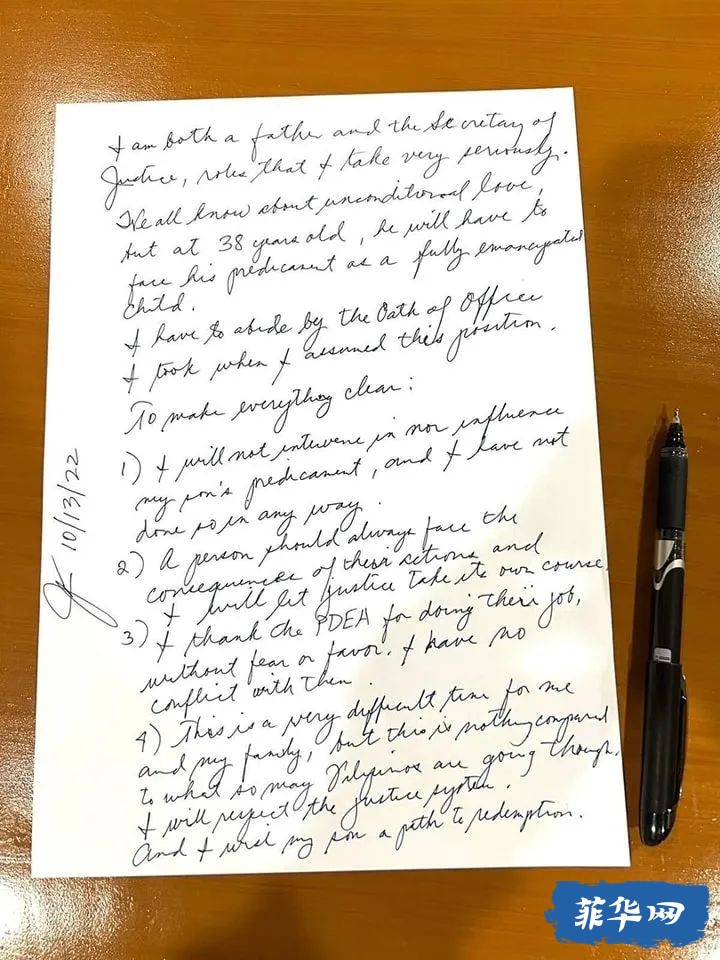 I am both a father and the Secretary of
Justice, roles that I take very seriously.
We all know about unconditional love,
but at 38 years old, he will have to
face his predicament as a fully emancipated
child.
I have to abide by the Oath of Office
I took when I assumed this position.
To make everything clear:
1) I will not intervene in nor influence
my son's predicament, and I have not
done so in any way.
2) A person should always face the
consequences of their actions and
I will let justice take its own course.
3) I thank the PDEA for doing their job,
without fear or favor. I have no
conflict with them.
4) This is a very difficult time for me
and my family, but this is nothing compared
to what so may Filipinos are going though.
I will respect the justice system.
And I wish my son a path to redemption.
10/13/22
菲华网